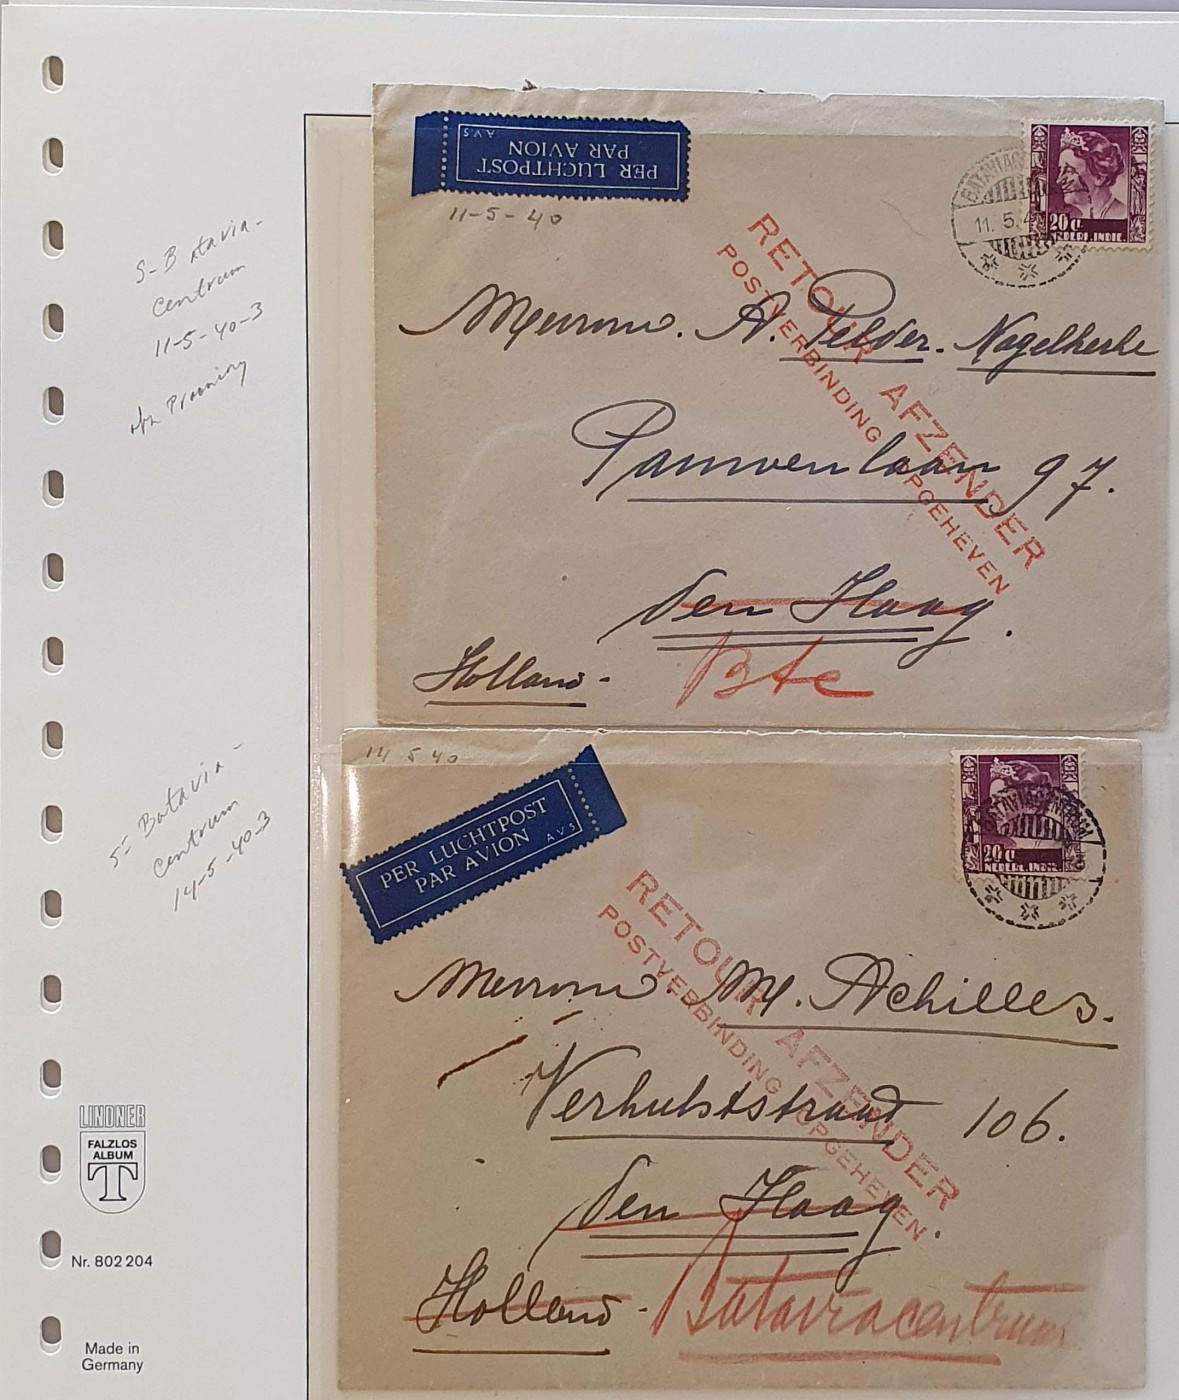 S-Batavia-
Centrum
11-5-40-3
PER LUCHTPOST
PAR AVION
AVS
11-5-40
BATAVIAC
11.5.4
20 ct.
NEDERL. INDIE
RETOUR AFZENDER
POSTVERBINDING OPGEHEVEN
Mevrouw. A. Pelder. Nagelkerke
Pauwenlaan 97.
den Haag.
Holland-
Btc
Batavia-
Centrum
14-5-40-3
14 5 40
PER LUCHTPOST
PAR AVION
AVS
20 ct
NEDERL. INDIE
BATAVIACENTRUM
RETOUR AFZENDER
POSTVERBINDING OPGEHEVEN
Mevrouw. M. Achilles.
Verhulststraat 106.
den Haag.
Holland-
Bataviacentrum
LINDNER
FALZLOS
ALBUM
T
Nr. 802 204
Made in
Germany